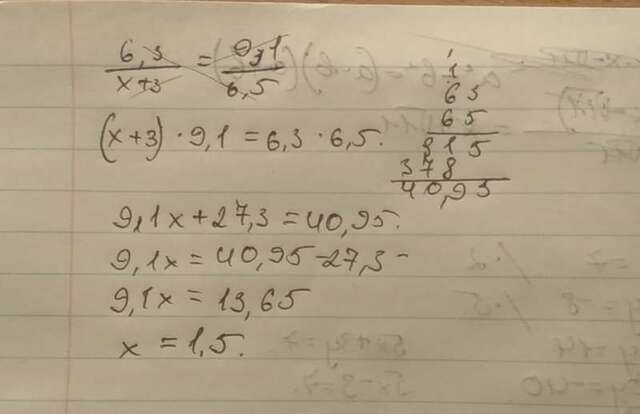 6,3 / x+3 = 9,1 / 6,5
(x+3) · 9,1 = 6,3 · 6,5.
9,1x + 27,3 = 40,95.
9,1x = 40,95 - 27,3 -
9,1x = 13,65
x = 1,5.
1
1
63
65
315
378
40,95